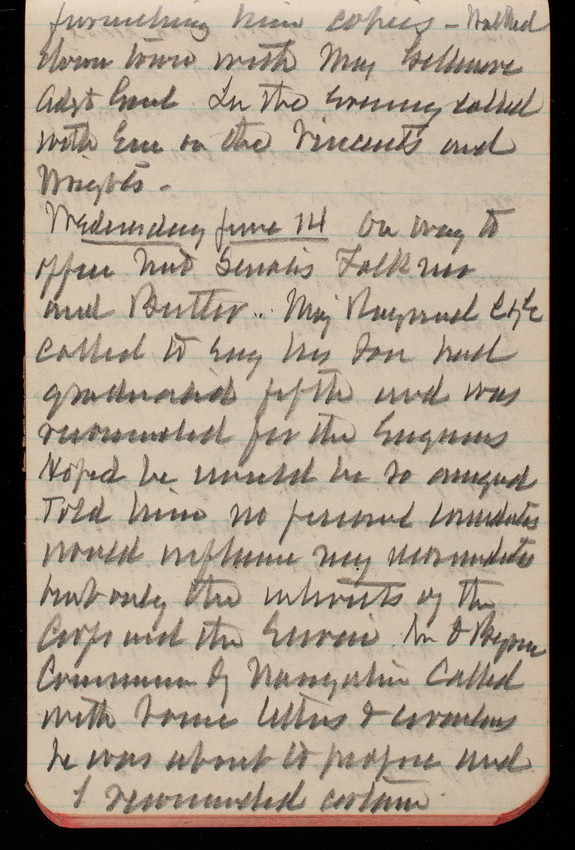 furnishing him copies - Walked
down town with Maj Gillmore
Adjt Genl In the Evening called
with Em on the Vincents and
Wrights -
Wednesday June 14 On way to
office met Senators Faulkner
and Butler.. Maj Raymond C of E
called to say his son had
graduated fifth and was
recommended for the Engineers
Hoped he would be so assigned
Told him no personal considerations
would influence my recommendations
but only the interests of the
Corps and the Service
Commissioner of Navigation Called
with some letters & circulars
he was about to propose and
I recommended certain